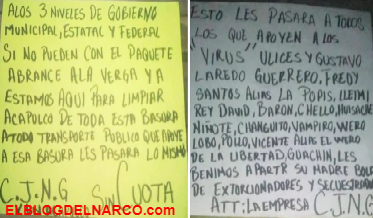 ALOS 3 NIVELES DE GOBIERNO
MUNICIPAL, ESTATAL Y FEDERAL
SI NO PUEDEN CON EL PAQUETE
ABRANCE ALA VERGA Y A
ESTAMOS AQUI PARA LIMPIAR
ACAPULCO DE TODA ESTA BASURA
ATODO TRANSPORTE PUBLICO QUE APOYE
A ESA BASURA LES PASARA LO MISMO
C.J.N.G SIN CUOTA
ESTO LES PASARA A TODOS
LOS QUE APOYEN A LOS
"VIRUS" ULICES Y GUSTAVO
LAREDO GUERRERO, FREDY
SANTOS ALIAS LA POPIS, ILEIMI
REY DAVID, BARON, CHELLO, HUISACHE
NIÑOTE, CHANGUITO, VAMPIRO, WERO
LOBO, POLLO, VICENTE ALIAS EL WERO
DE LA LIBERTAD, GUACHIN, LES
BENIMOS A PARTIR SU MADRE BOLA
DE EXTORCIONADORES Y SECUESTRADORES
ATT: LA EMPRESA C.J.N.G
ELBLOGDELNARCO.COM